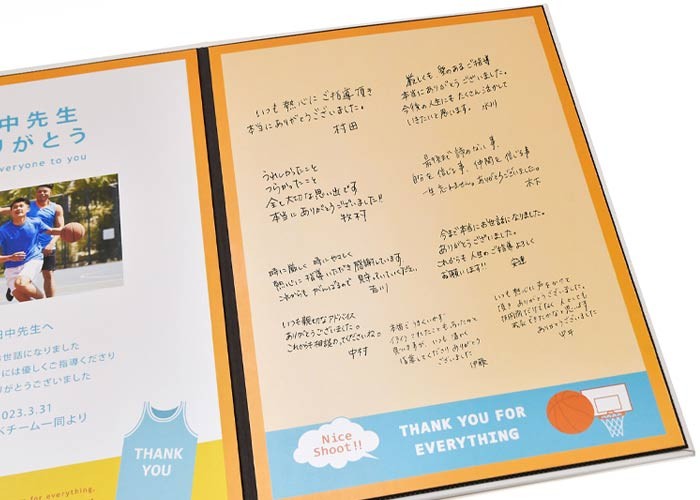 中先生
りがとう
everyone to you
田中先生へ
お世話になりました
には優しくご指導くださり
りがとうございました
2023.3.31
チーム一同より
THANK
YOU
for everything.
いつも熱心にご指導頂き
本当にありがとうございました。
村田
厳しくも愛のあるご指導
本当にありがとうございました。
今後の人生にもたくさん活かして
いきたいと思います。 水川
うれしかったこと
つらかったこと
全て大切な思い出です
本当にありがとうございました!!
牧村
最後まで諦めない事、
自分を信じる事、仲間を信じる事
一生忘れません。ありがとうございました。
木下
時に厳しく 時にやさしく
熱心に指導いただき感謝しています
これからもがんばるので 見守っていてください。
吉川
今まで本当にお世話になりました。
ありがとうございました。
これからも人生のご指導よろしく
お願います!! 安達
いつも親切なアドバイス
ありがとうございました。
これからも相談のってくださいね。
中村
本当にうまくいかず
イライラしたこともあったけど
いつも温かく
指導してくださりありがとう
ございました
伊藤
いつも熱心に声をかけて
頂きありがとうございました。
ありがとうございました
Nice
Shoot!!
THANK YOU FOR
EVERYTHING